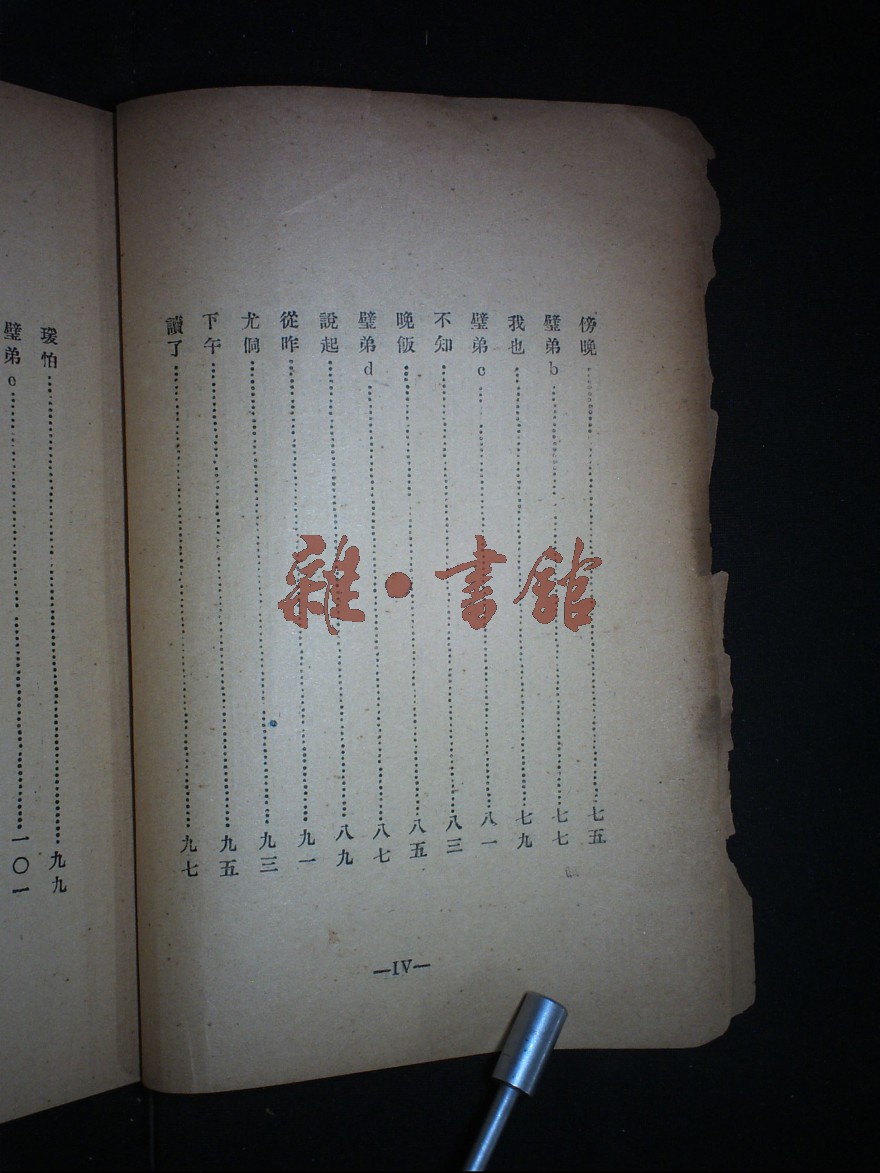 傍晚……七五
璧弟b……七七
我也……七九
璧弟c……八一
不知……八三
晚飯……八五
璧弟d……八七
說起……八九
從昨……九一
尤侗……九三
下午……九五
讀了……九七
—IV—
瑗怕……九九
璧弟e……一〇一
雜·書館